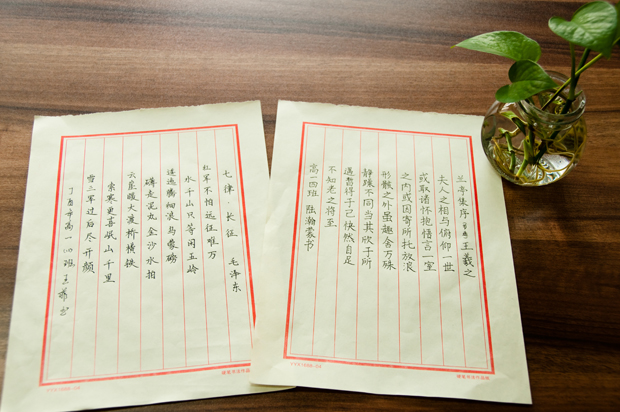 七律·长征 毛泽东
红军不怕远征难万
水千山只等闲五岭
逶迤腾细浪乌蒙磅
礴走泥丸金沙水拍
云崖暖大渡桥横铁
索寒更喜岷山千里
雪三军过后尽开颜
丁酉年高一四班 书
兰亭集序 节选 王羲之
夫人之相与俯仰一世
或取诸怀抱悟言一室
之内或因寄所托放浪
形骸之外虽趣舍万殊
静躁不同当其欣于所
遇暂得于己快然自足
不知老之将至
高一四班 陆瀚蒙书